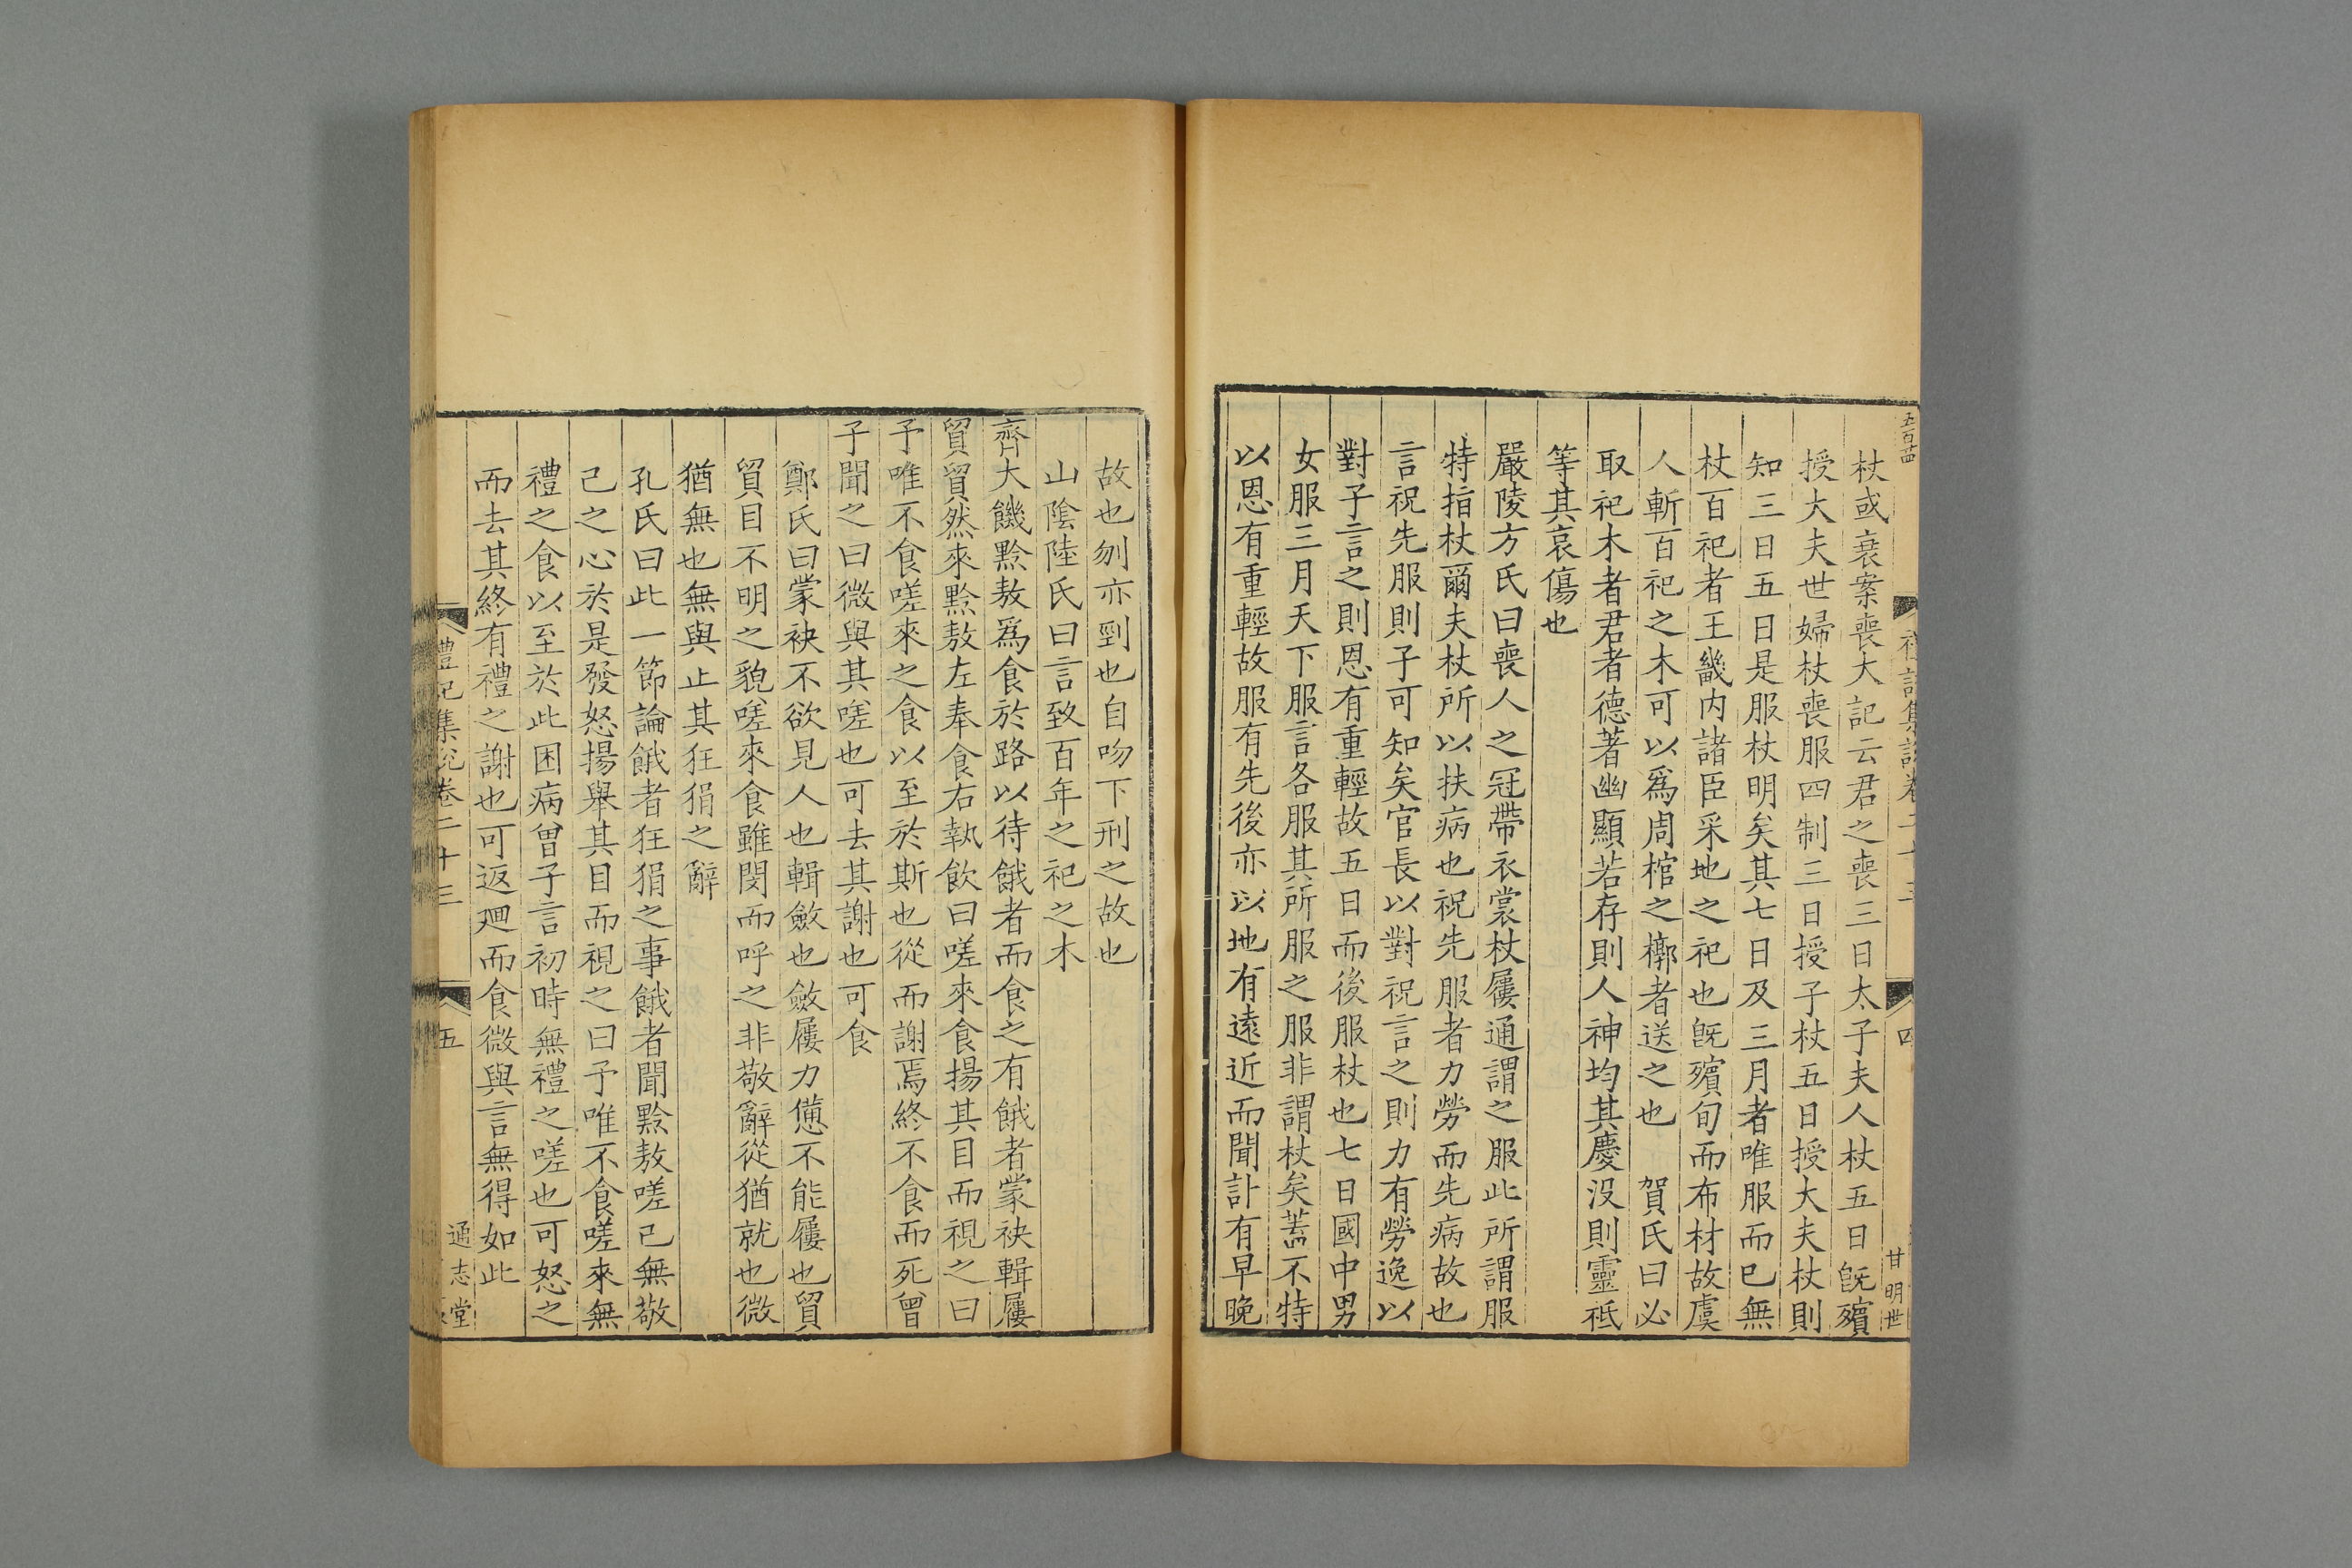 五百卌
杖或衰案喪大記云君之喪三日太子夫人杖五日旣殯
授大夫世婦杖喪服四制三日授子杖五日授大夫杖則
知三日五日是服杖明矣其七日及三月者唯服而已無
杖百祀者王畿内諸臣采地之祀也旣殯旬而布材故虞
人斬百祀之木可以爲周棺之槨者送之也　賀氏曰必
取祀木者君者德著幽顯若存則人神均其慶没則靈祇
等其哀傷也
嚴陵方氏曰喪人之冠帶衣裳杖屨通謂之服此所謂服
特指杖爾夫杖所以扶病也祝先服者力勞而先病故也
言祝先服則子可知矣官長以對祝言之則力有勞逸以
對子言之則恩有重輕故五日而後服杖也七日國中男
女服三月天下服言各服其所服之服非謂杖矣蓋不特
以恩有重輕故服有先後亦以地有遠近而聞計有早晚
禮記集說卷二十三
四
甘明世
故也刎亦剄也自吻下刑之故也
山陰陸氏曰言致百年之祀之木
齊大饑黔敖爲食於路以待餓者而食之有餓者蒙袂輯屨
貿貿然來黔敖左奉食右執飲曰嗟來食揚其目而視之曰
予唯不食嗟來之食以至於斯也從而謝焉終不食而死曾
子聞之曰微與其嗟也可去其謝也可食
鄭氏曰蒙袂不欲見人也輯斂也斂屨力憊不能屨也貿
貿目不明之貌嗟來食雖閔而呼之非敬辭從猶就也微
猶無也無與止其狂狷之辭
孔氏曰此一節論餓者狂狷之事餓者聞黔敖嗟己無敬
己之心於是發怒揚舉其目而視之曰予唯不食嗟來無
禮之食以至於此困病曾子言初時無禮之嗟也可怒之
而去其終有禮之謝也可返迴而食微與言無得如此
禮記集說卷二十三
五
通志堂